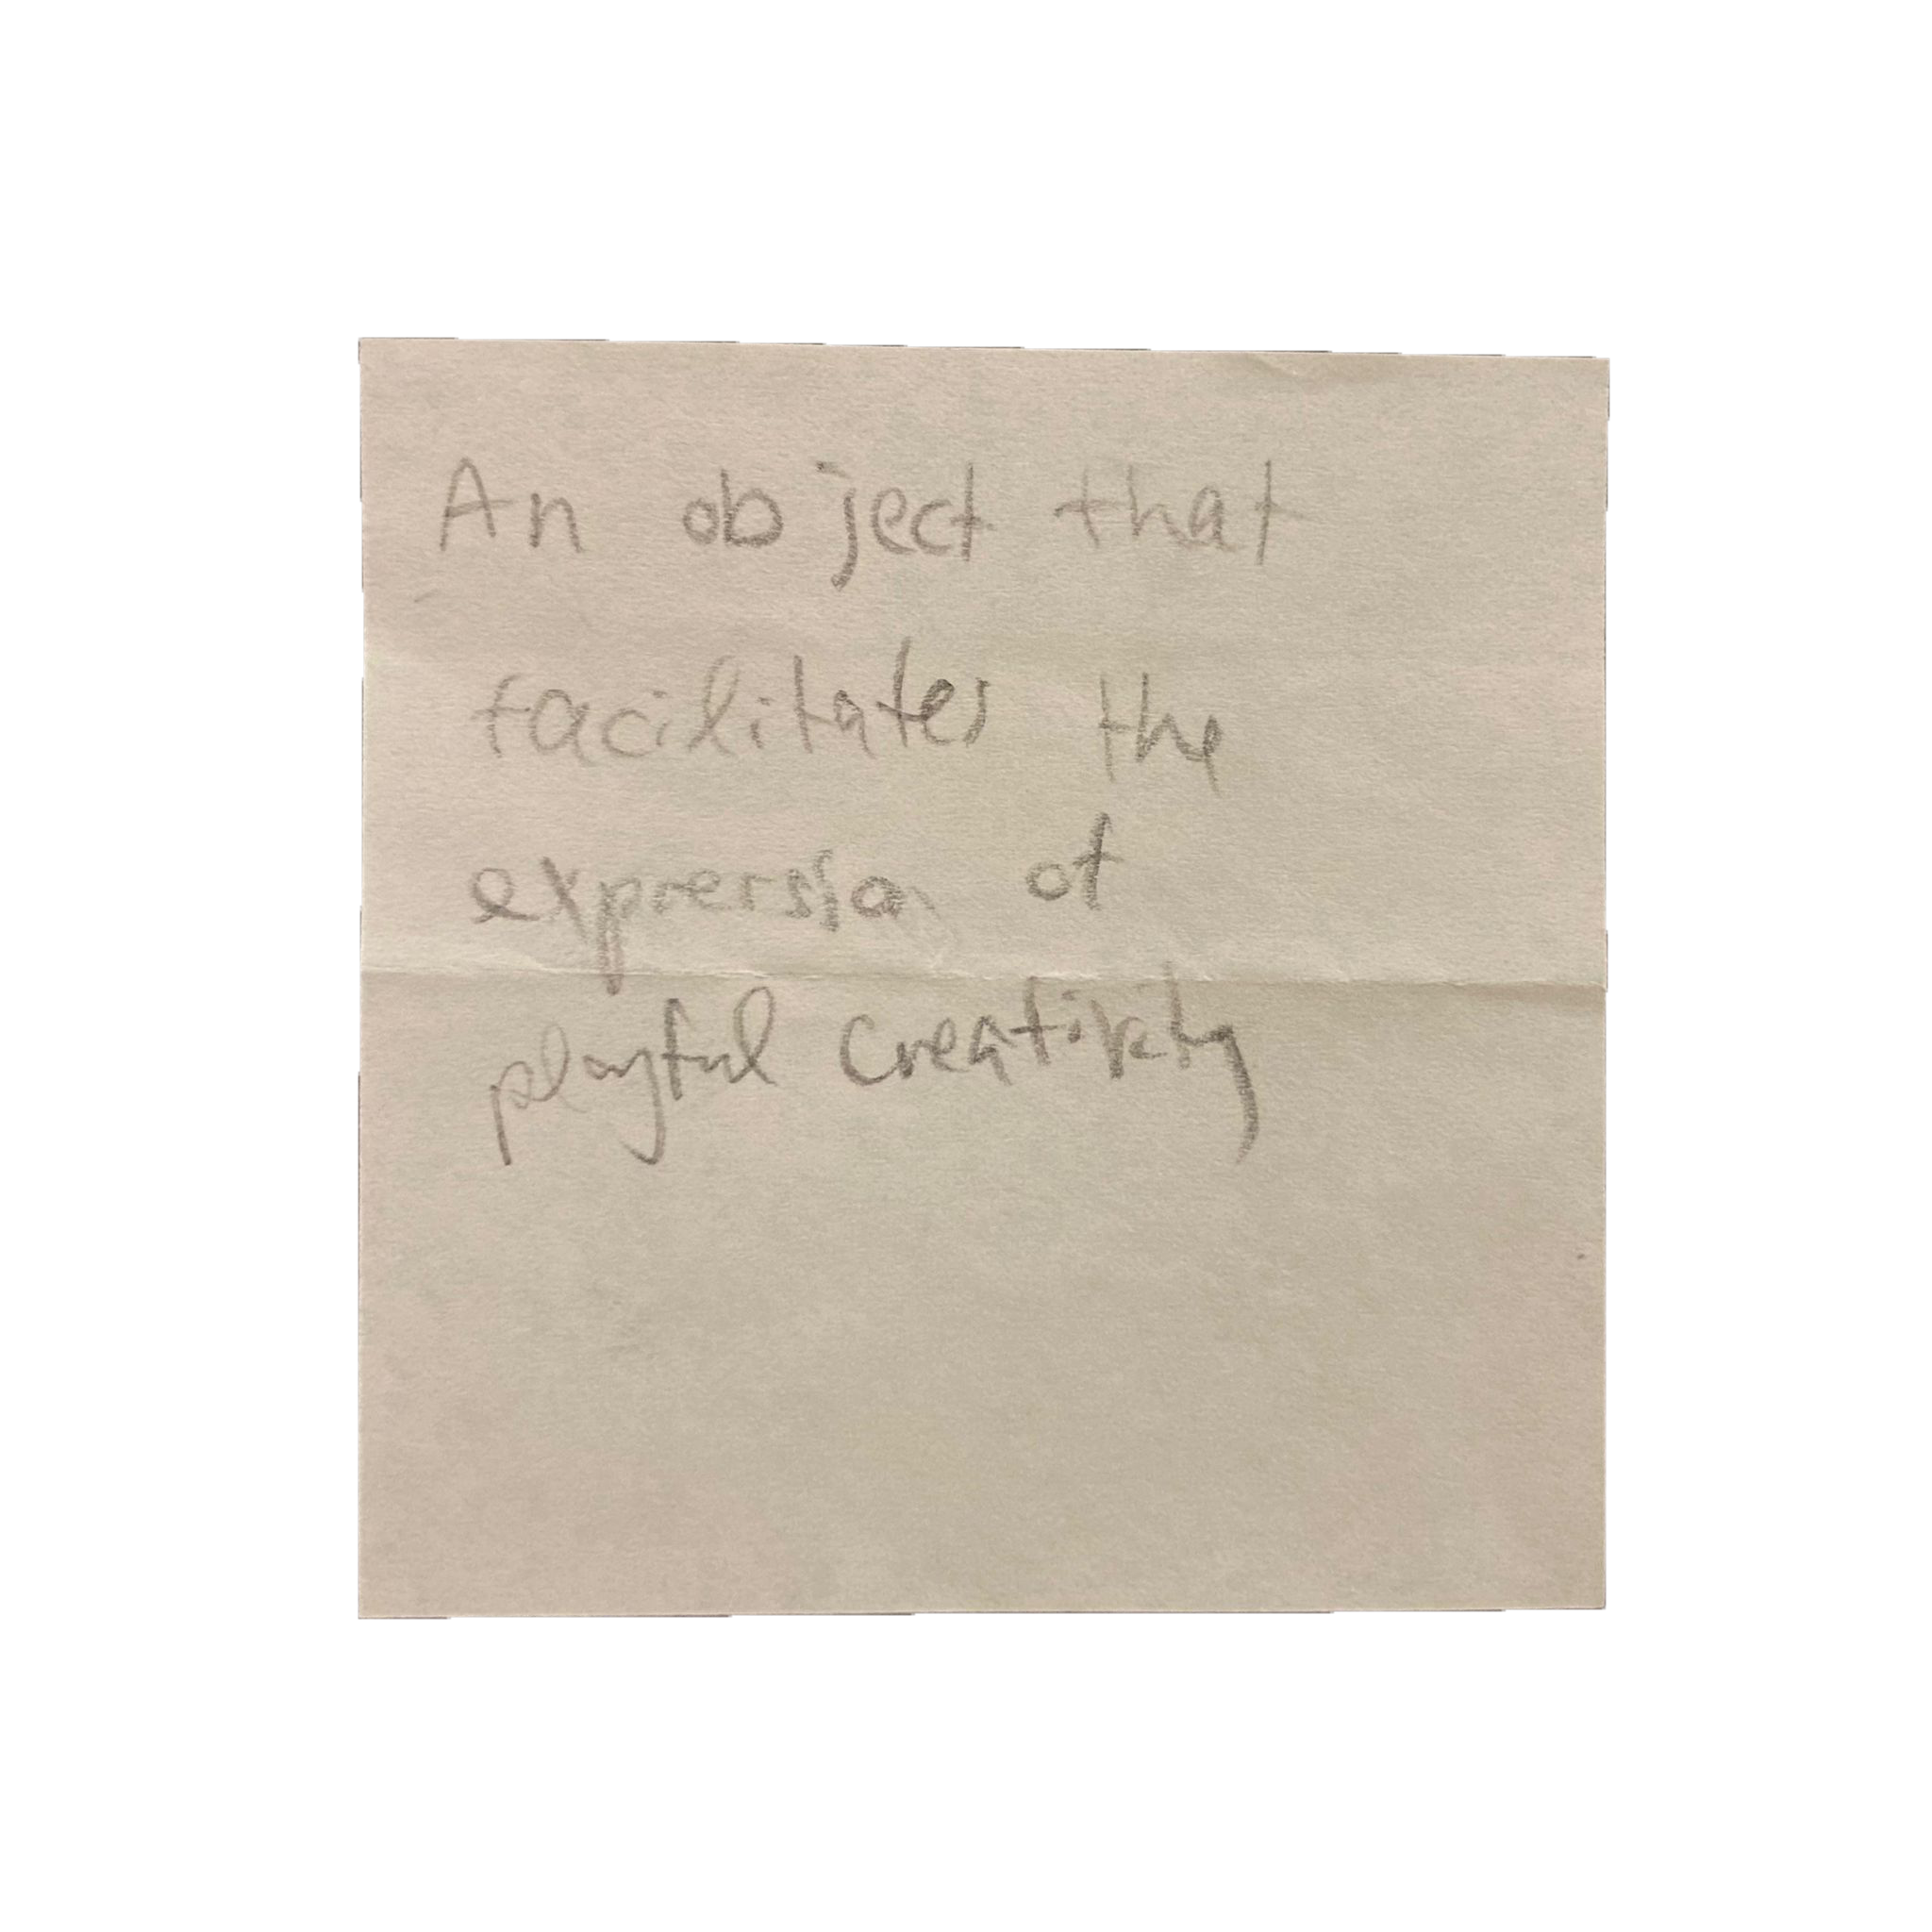 An object that
facilitates the
expression of
playful creativity